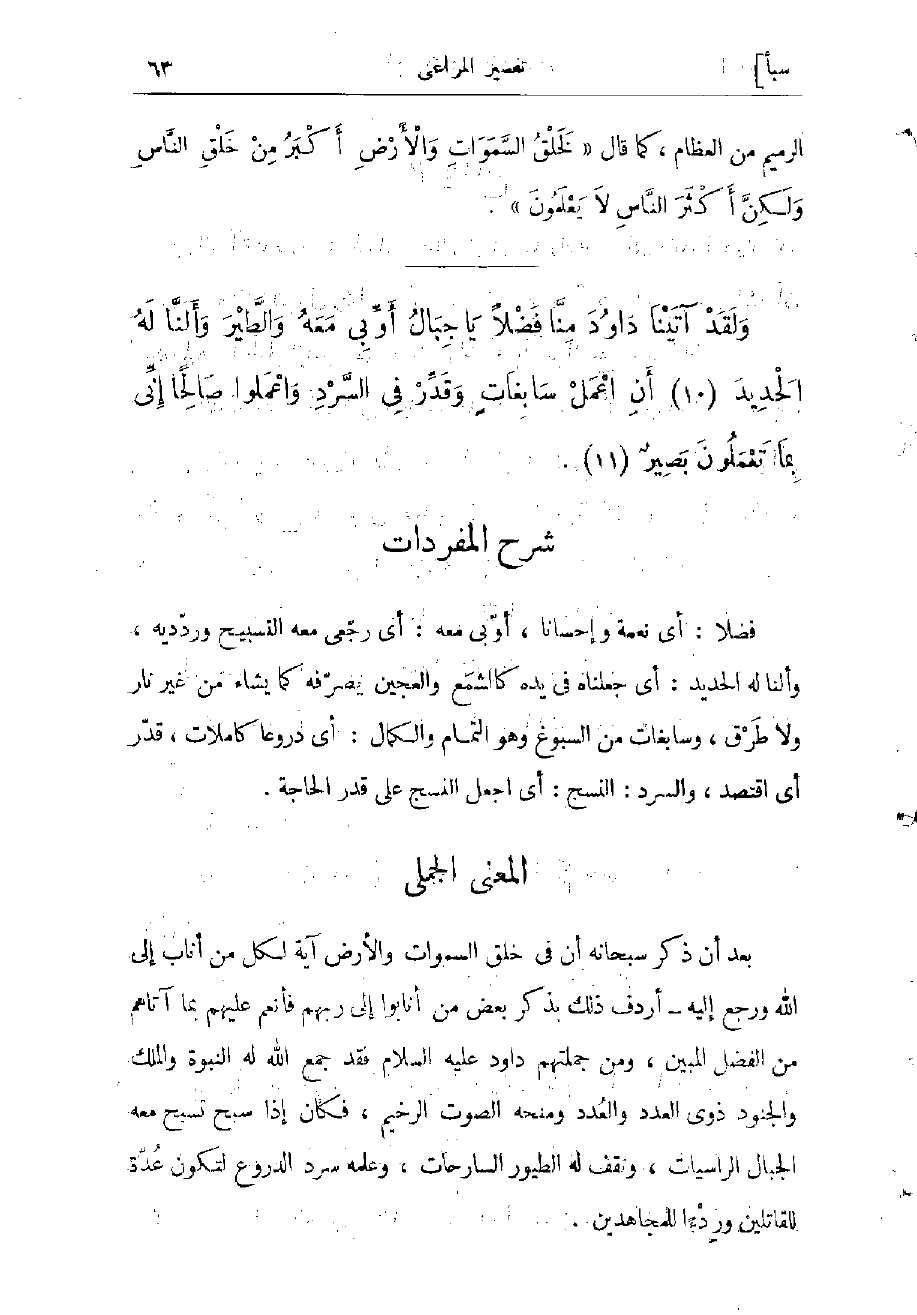 سبأ] تفسير المراغى ٦٣
الرميم من العظام ، كما قال « لَخَلْقُ السَّمَوَاتِ وَالْأَرْضِ أَكْبَرُ مِنْ خَلْقِ النَّاسِ
وَلَكِنَّ أَكْثَرَ النَّاسِ لاَ يَعْلَمُونَ » .
وَلَقَدْ آتَيْنَا دَاوُدَ مِنَّا فَضْلاً يَا جِبَالُ أَوِّبِي مَعَهُ وَالطَّيْرَ وَأَلَنَّا لَهُ
الْحَدِيدَ (١٠) أَنِ اعْمَلْ سَابِغَاتٍ وَقَدِّرْ فِي السَّرْدِ وَاعْمَلوا صَالِحًا إِنِّى
بِمَا تَعْمَلُونَ بَصِيرٌ (١١) .
شرح المفردات
فضلا : أى نعمة وإحسانا ، أوّبى معه : أى رجّعى معه التسبيح وردّديه ،
وألنا له الحديد : أى جعلناه فى يده كالشمع والعجين يصرّفه كما يشاء من غير نار
ولا طَرْق ، وسابغات من السبوغ وهو التمام والكمال : أى دروعا كاملات ، قدّر
أى اقتصد ، والسرد : النسج : أى اجعل النسج على قدر الحاجة .
المعنى الجملى
بعد أن ذكر سبحانه أن فى خلق السموات والأرض آية لكل من أناب إلى
الله ورجع إليه – أردف ذلك بذكر بعض من أنابوا إلى ربهم فأنعم عليهم بما آتاهم
من الفضل المبين ، ومن جملتهم داود عليه السلام فقد جمع الله له النبوة والملك
والجنود ذوى العدد والعُدد ومنحه الصوت الرخيم ، فكان إذا سبح تسبح معه
الجبال الراسيات ، وتقف له الطيور السارحات ، وعلمه سرد الدروع لتكون عُدّة
للقاتلين ورِدْءًا للمجاهدين .